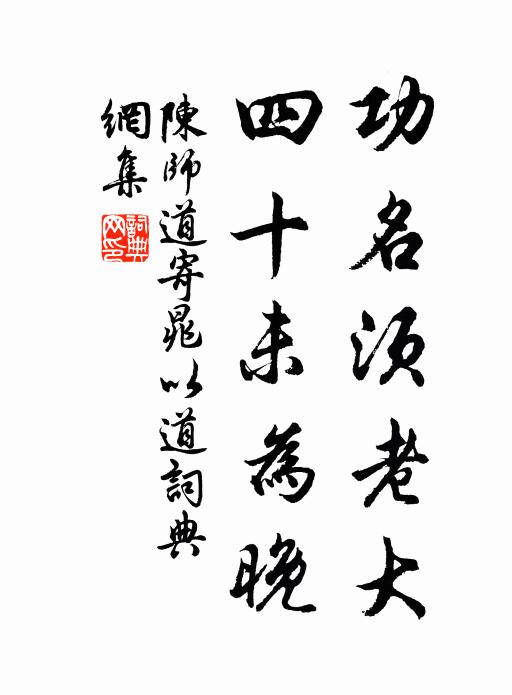 功名須老大
四十未為晚
陳師道寄晁以道詞典
網集
詞典网印